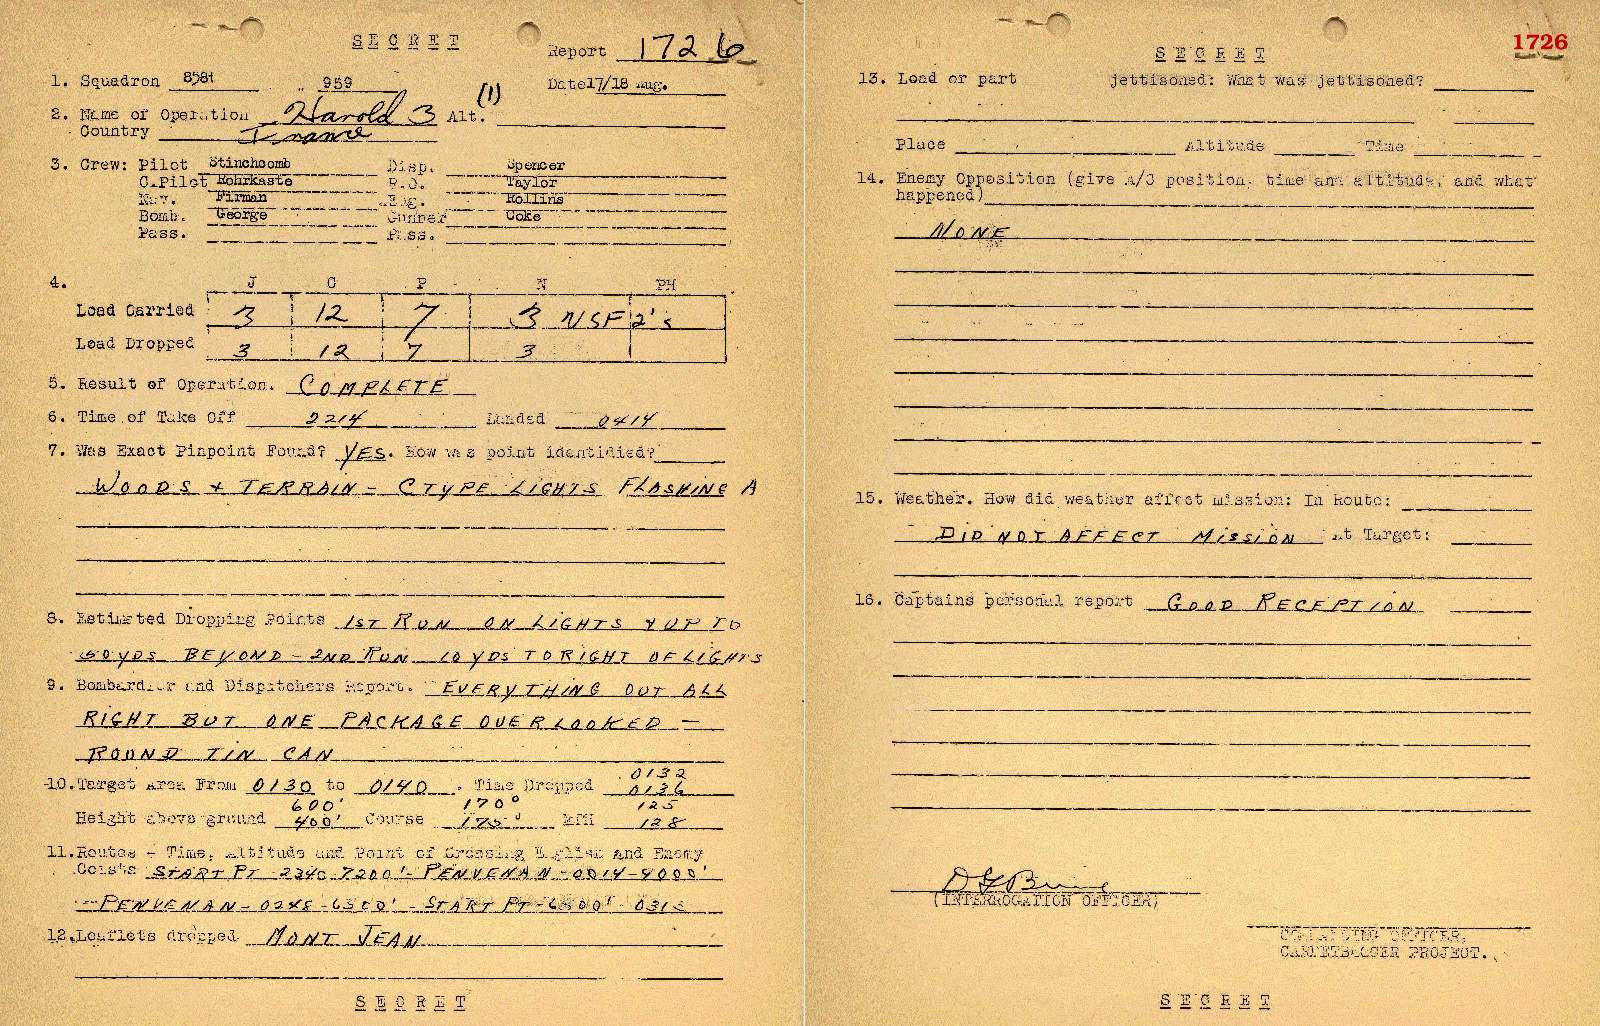 SECRET
Report 1726
1. Squadron 858t " 959 Date 17/18 Aug.
2. Name of Operation Harold 3 Alt. (1)
Country France
3. Crew: Pilot Stinchcomb Disp. Spencer
C.Pilot Rohrkaste R.O. Taylor
Nav. Firman Eng. Rollins
Bomb. George Gunner Coke
Pass. Pass.
4. J C P N PH
Load Carried 3 12 7 3 NSF 2's
Load Dropped 3 12 7 3
5. Result of Operation. COMPLETE
6. Time of Take Off 2214 Landed 0414
7. Was Exact Pinpoint Found? YES. How was point identidied?
WOODS + TERRAIN - C TYPE LIGHTS FLASHING A
8. Estimated Dropping Points 1ST RUN ON LIGHTS & UP TO
50 YDS BEYOND - 2ND RUN 10 YDS TO RIGHT OF LIGHTS
9. Bombardier and Dispatchers Report. EVERYTHING OUT ALL
RIGHT BUT ONE PACKAGE OVERLOOKED -
ROUND TIN CAN
0132
10. Target Area From 0130 to 0140. Time Dropped 0136
600' 170° 125
Height above ground 400' Course 175° MPH 128
11. Routes - Time, Altitude and Point of Crossing English and Enemy
Coasts START PT 2340 7200' - PENVENAN - 0014 - 9000'
- PENVENAN - 0248 - 6500' - START PT - 6500'
12. Leaflets dropped MONT JEAN
SECRET
1726
SECRET
13. Load or part jettisoned: What was jettisoned?
Place Altitude Time
14. Enemy Opposition (give A/C position, time and altitude, and what
happened)
NONE
15. Weather. How did weather affect mission: In Route:
DID NOT AFFECT MISSION At Target:
16. Captains personal report GOOD RECEPTION
(INTERROGATION OFFICER)
COMMANDING OFFICER,
CARPETBAGGER PROJECT.
SECRET